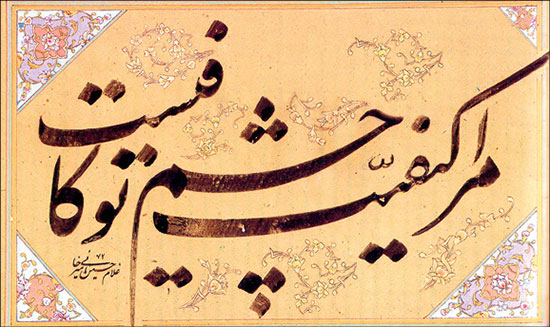 مرا کیفیت چشم تو کافیست
غلامحسین امیرخانی ۶۲